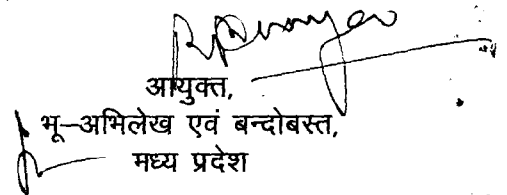 आयुक्त,
भू-अभिलेख एवं बन्दोबस्त,
मध्य प्रदेश